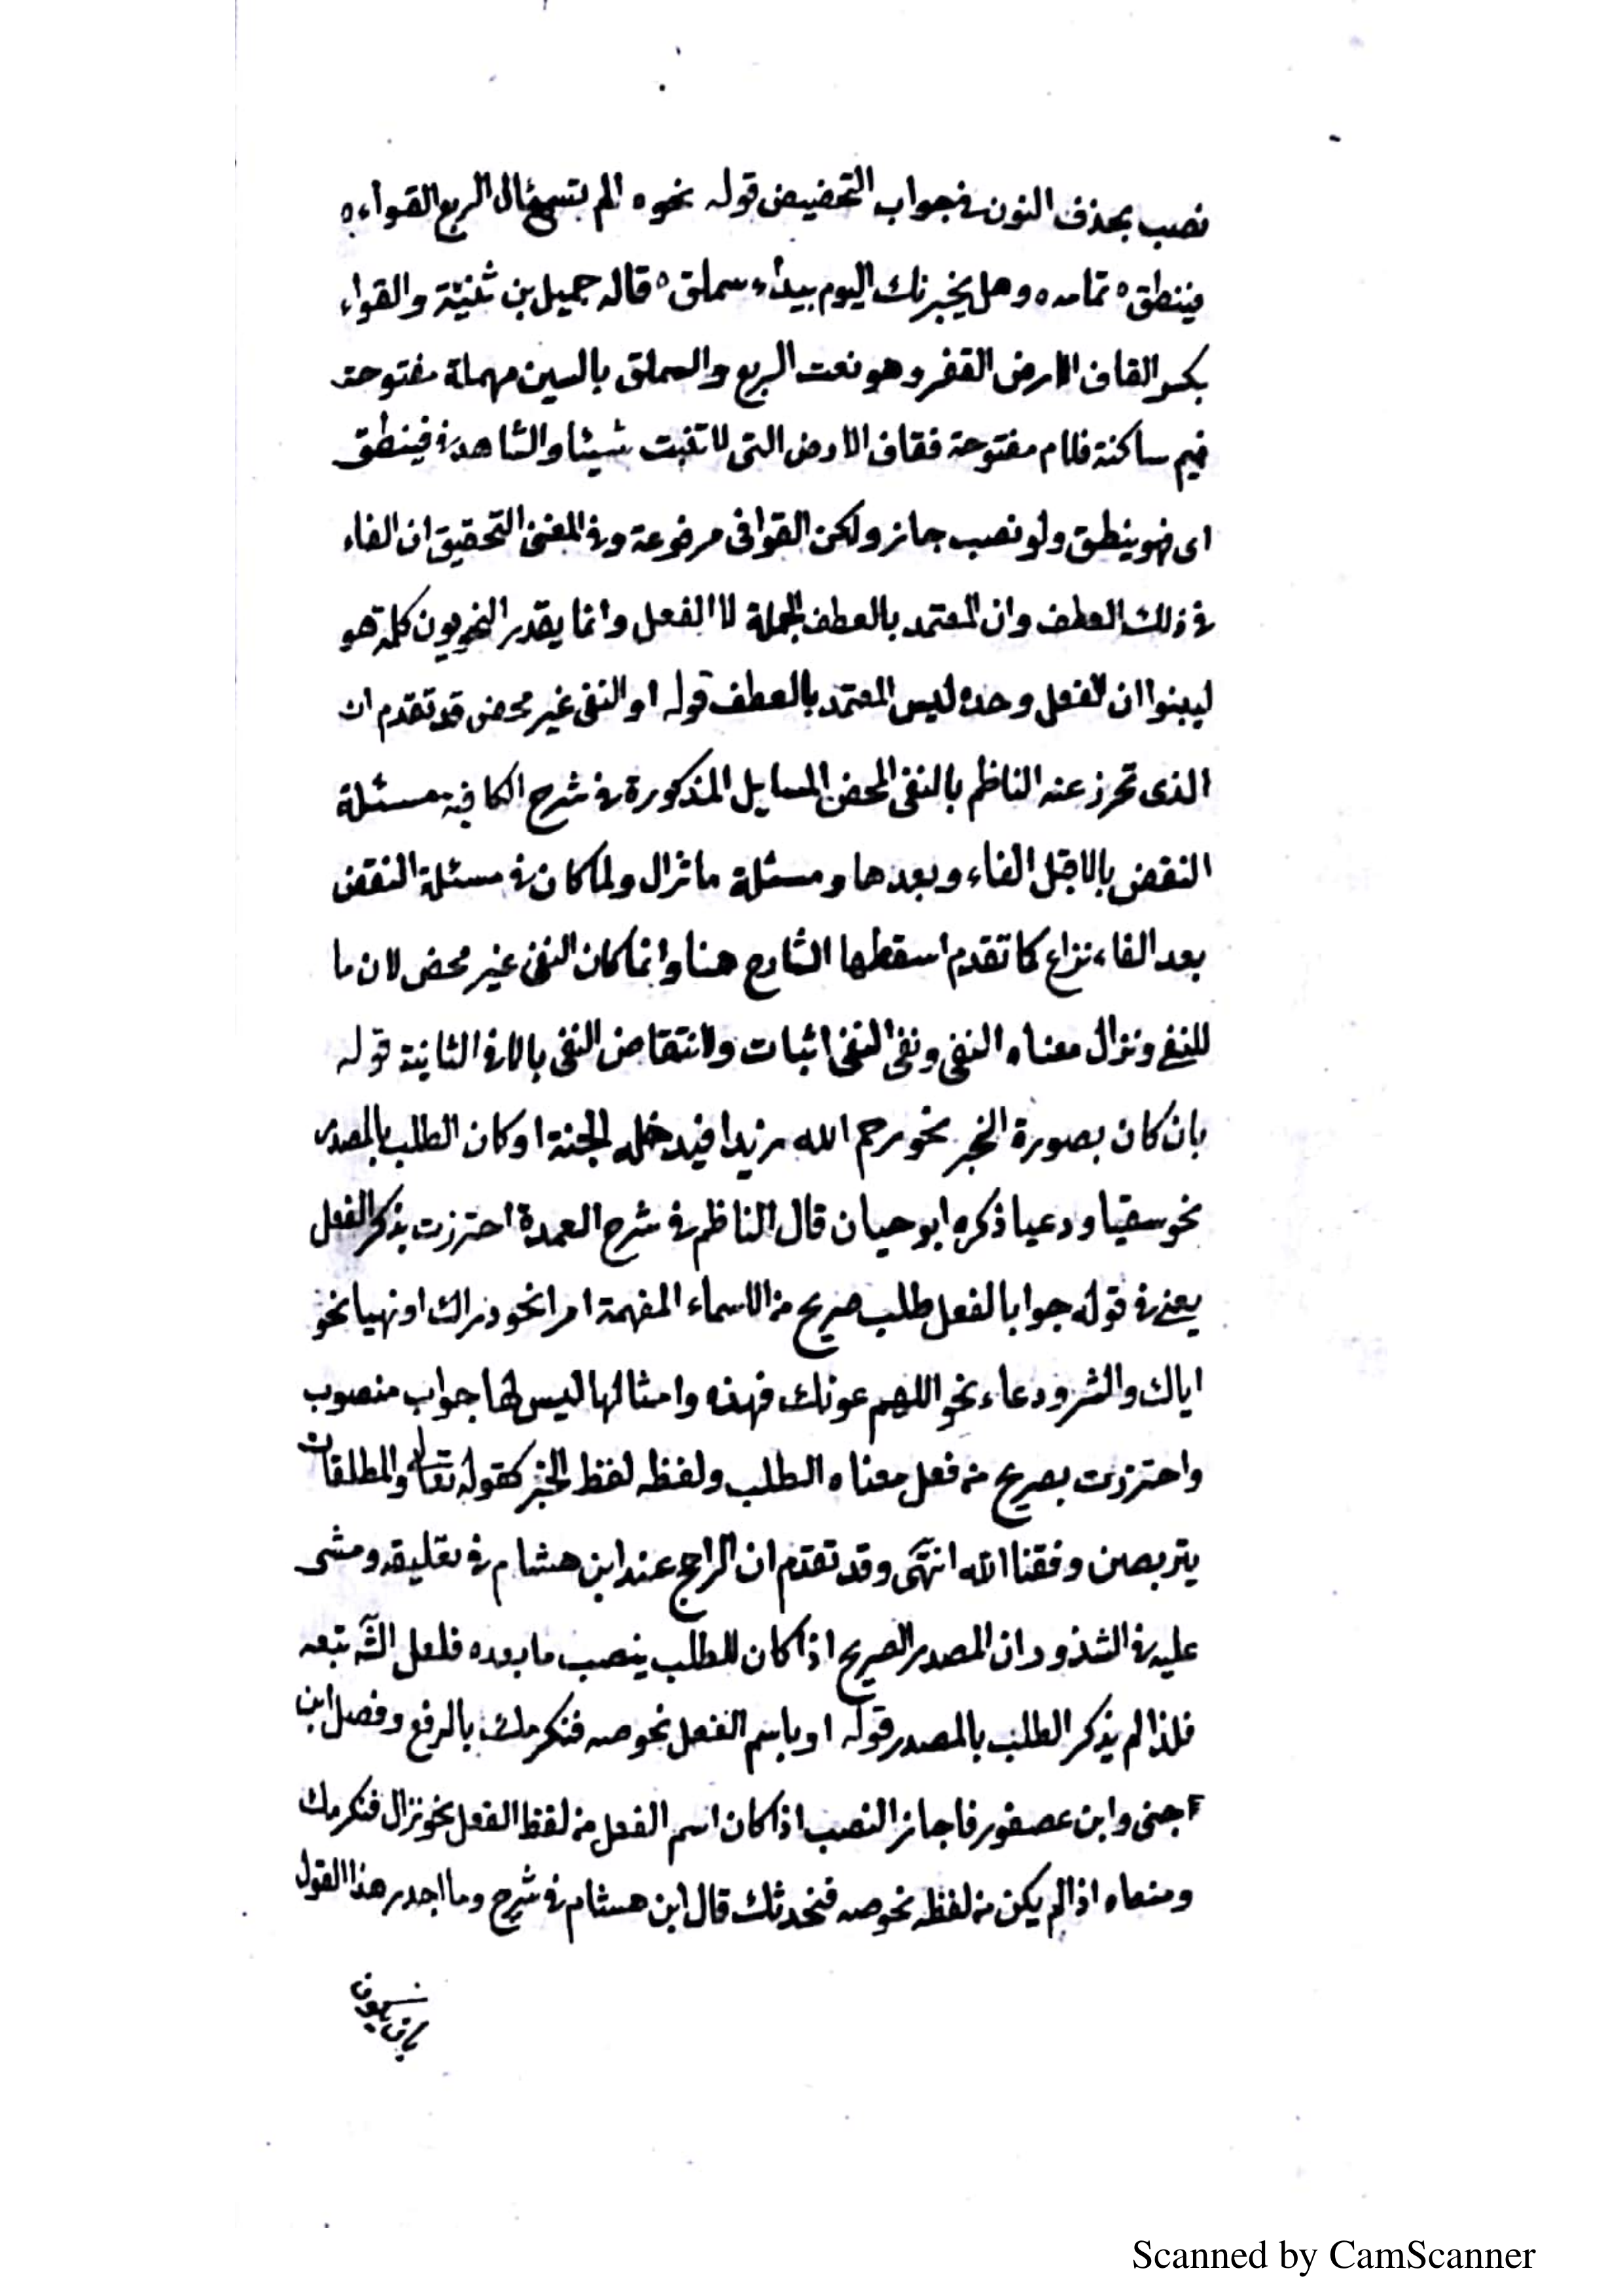 نصب بحذف النون في جواب التحضيض قوله نحوه الم تسئال الربع القواء ه
فينطق ه تمامه ه وهل يخبرنك اليوم بيداء سملق ه قاله جميل بن ثنيئة والقواء
بكسر القاف الارض القفر وهو نعت الربع والسملق بالسين مهملة مفتوحة
فيم ساكنة فلام مفتوحة فقاف الارض التي لا تنبت شيئا والشاهد في فينطق
اى فهو ينطق ولو نصب جاز ولكن القوافى مرفوعة وفي المغنى التحقيق ان الفاء
في ذلك العطف وان المعتمد بالعطف الجملة لا الفعل وانما يقدر النحويون كلمة هو
ليبنوا ان الفعل وحده ليس المعتمد بالعطف قوله او النفى غير محض قد تقدم ان
الذى تحرز عنه الناظم بالنفى المحض المسايل المذكورة في شرح الكافية مسئلة
النقض بالا قبل الفاء وبعدها ومسئلة ما تزال ولما كان في مسئلة النقض
بعد الفاء نزاع كما تقدم اسقطها الشارح هنا وانما كان النفى غير محض لان ما
للنفى وتزال معناه النفى ونفى النفى اثبات وانتقاض النفى بالا في الثانية قوله
بان كان بصورة الخبر نحو رحم الله زيدا فيدخله الجنة او كان الطلب بالمصدر
نحو سقيا ورعيا ذكره ابو حيان قال الناظم في شرح العمدة احترزت بذكر الفعل
يعنى في قوله جوابا لفعل طلب صريح من الاسماء المفهمة امرا نحو دراك او نهيا نحو
اياك والشر ودعاء نحو اللهم عونك فهذه وامثالها ليس لها جواب منصوب
واحترزت بصريح من فعل معناه الطلب ولفظه لفظ الخبر كقوله تعالى والمطلقات
يتربصن وفقنا الله انتهى وقد تقدم ان الراجح عند ابن هشام في تعليقه ومشى
عليه في الشذور ان المصدر الصريح اذا كان للطلب ينصب ما بعده فلعل الش تبعه
فلذا لم يذكر الطلب بالمصدر قوله او باسم الفعل نحو صه فنكرمك بالرفع وفصل ابن
جنى وابن عصفور فاجاز النصب اذا كان اسم الفعل من لفظ الفعل نحو نزال فنكرمك
ومنعاه اذا لم يكن من لفظه نحو صه فنحدثك قال ابن هشام في شرح وما اجدر هذا القول
Scanned by CamScanner